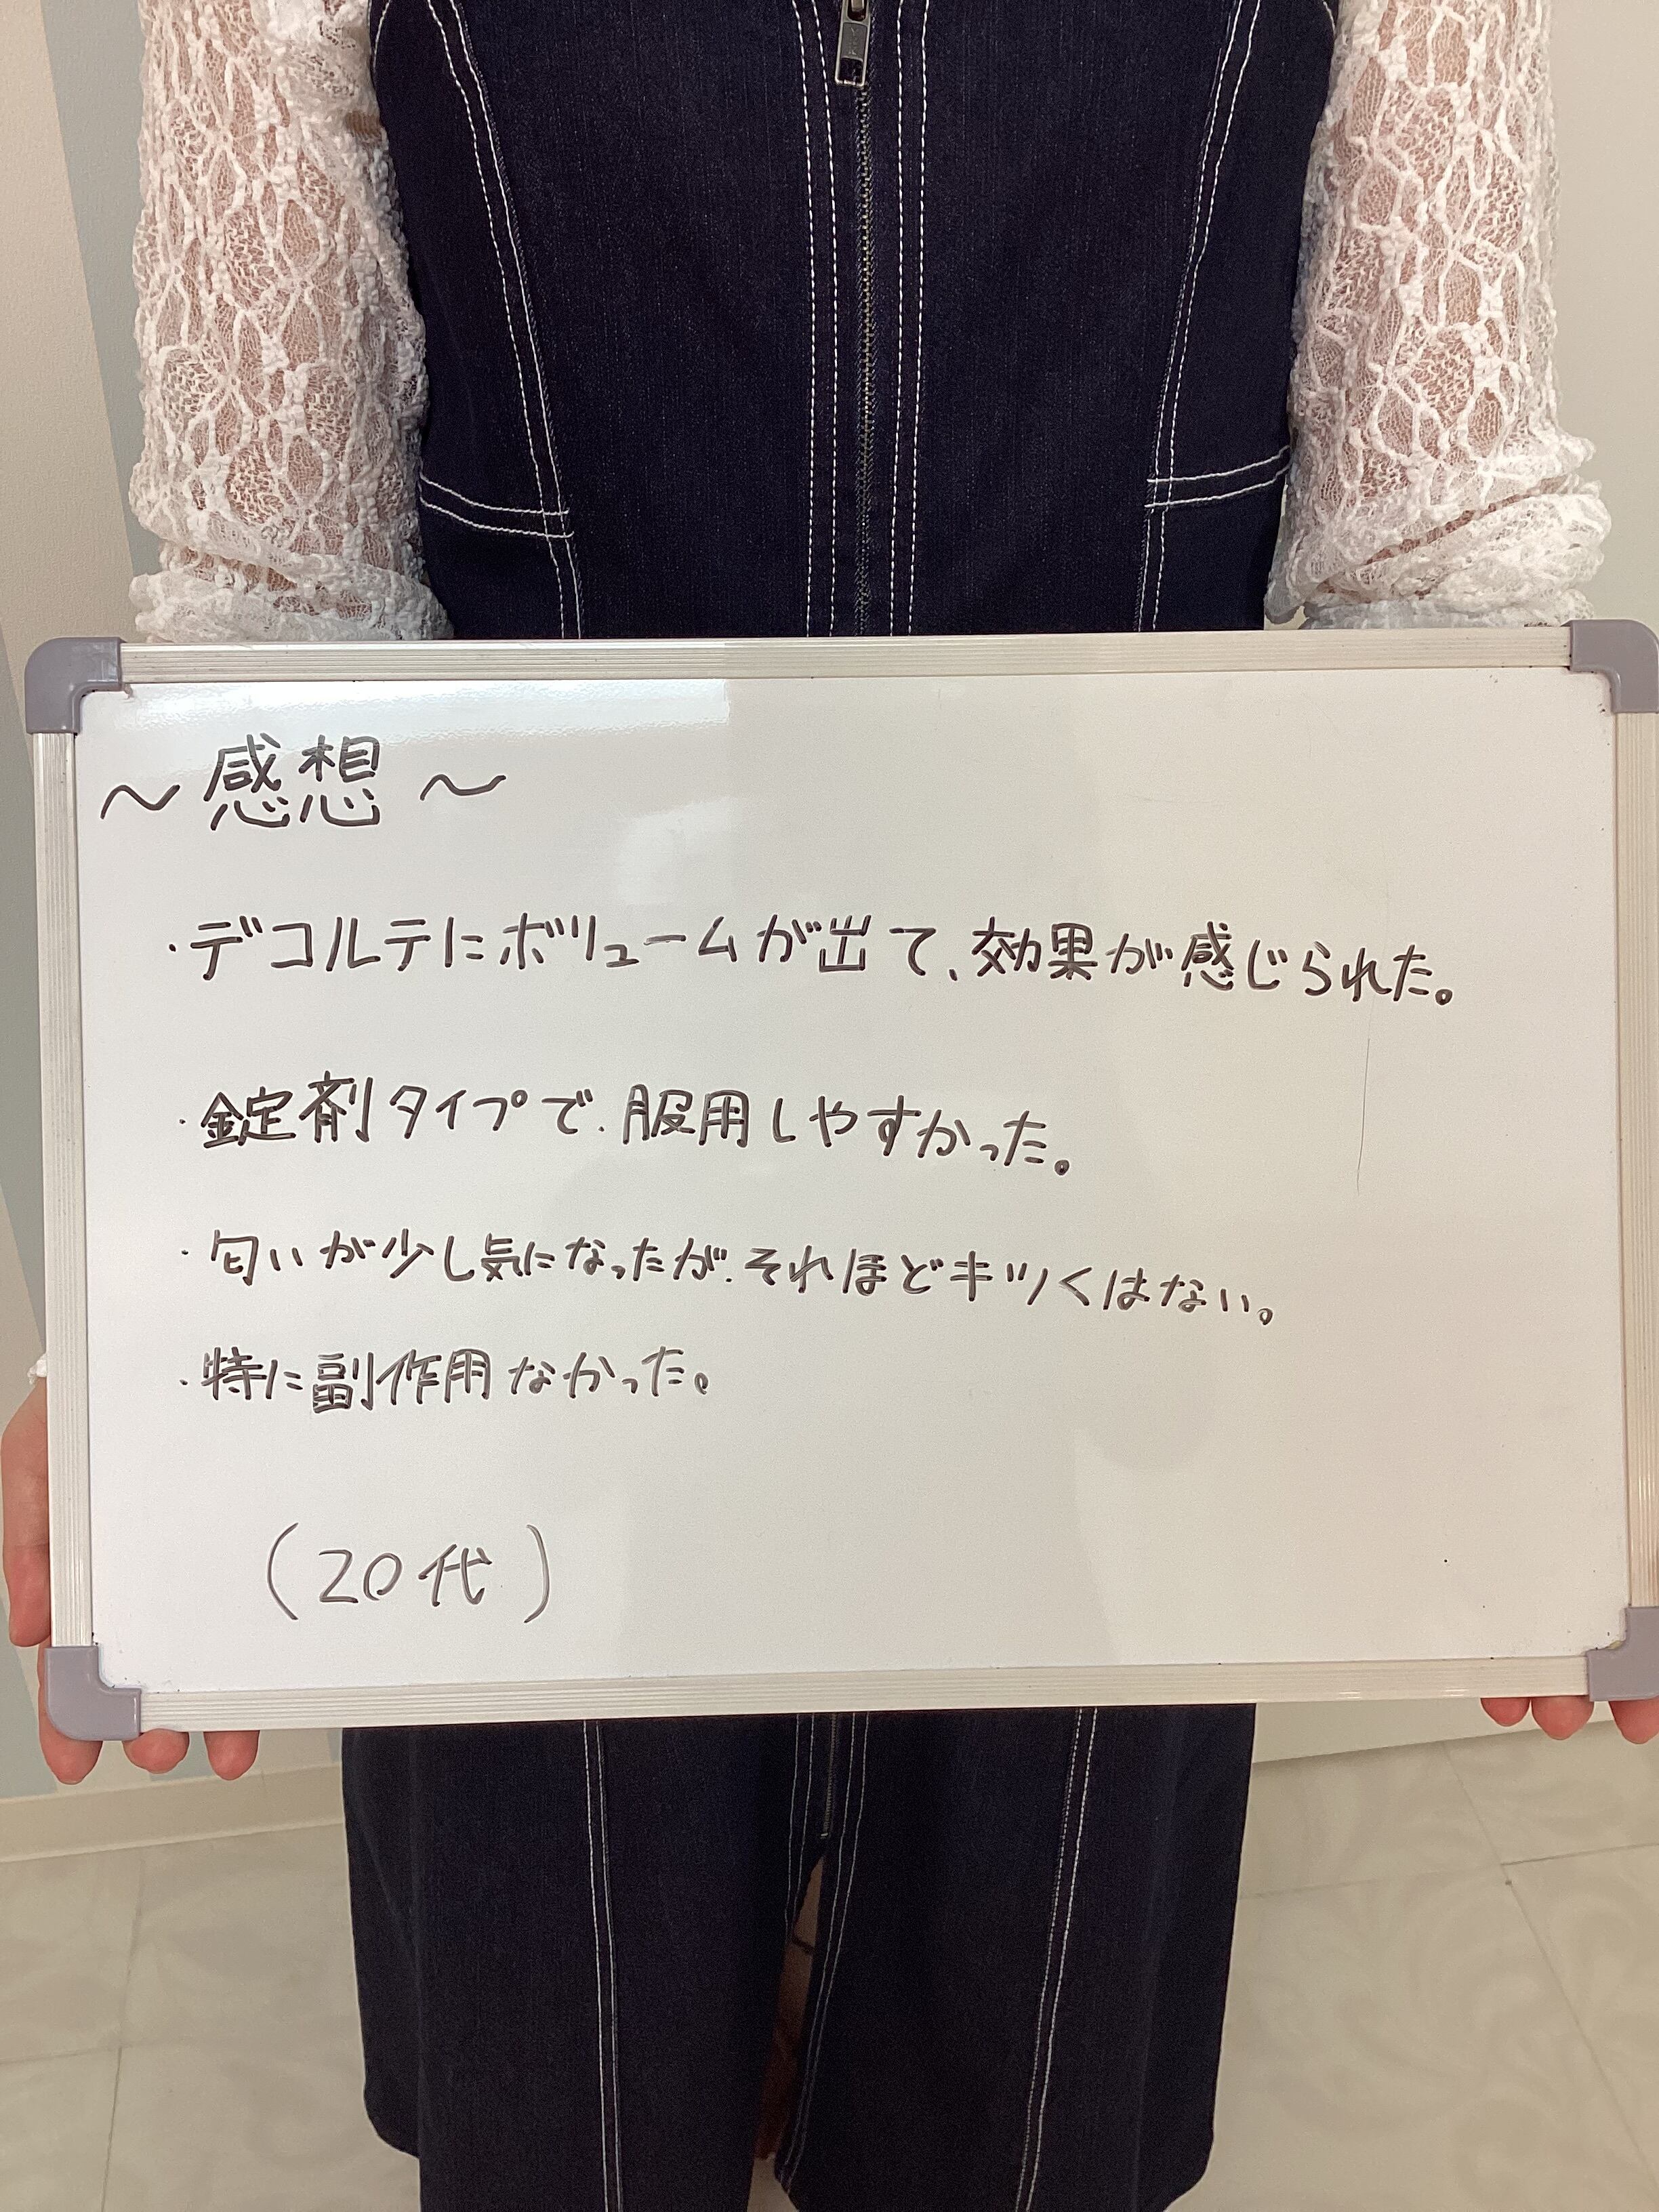 ～感想～
・デコルテにボリュームが出て、効果が感じられた。
・錠剤タイプで、服用しやすかった。
・匂いが少し気になったが、それほどキツくはない。
・特に副作用なかった。
(20代)